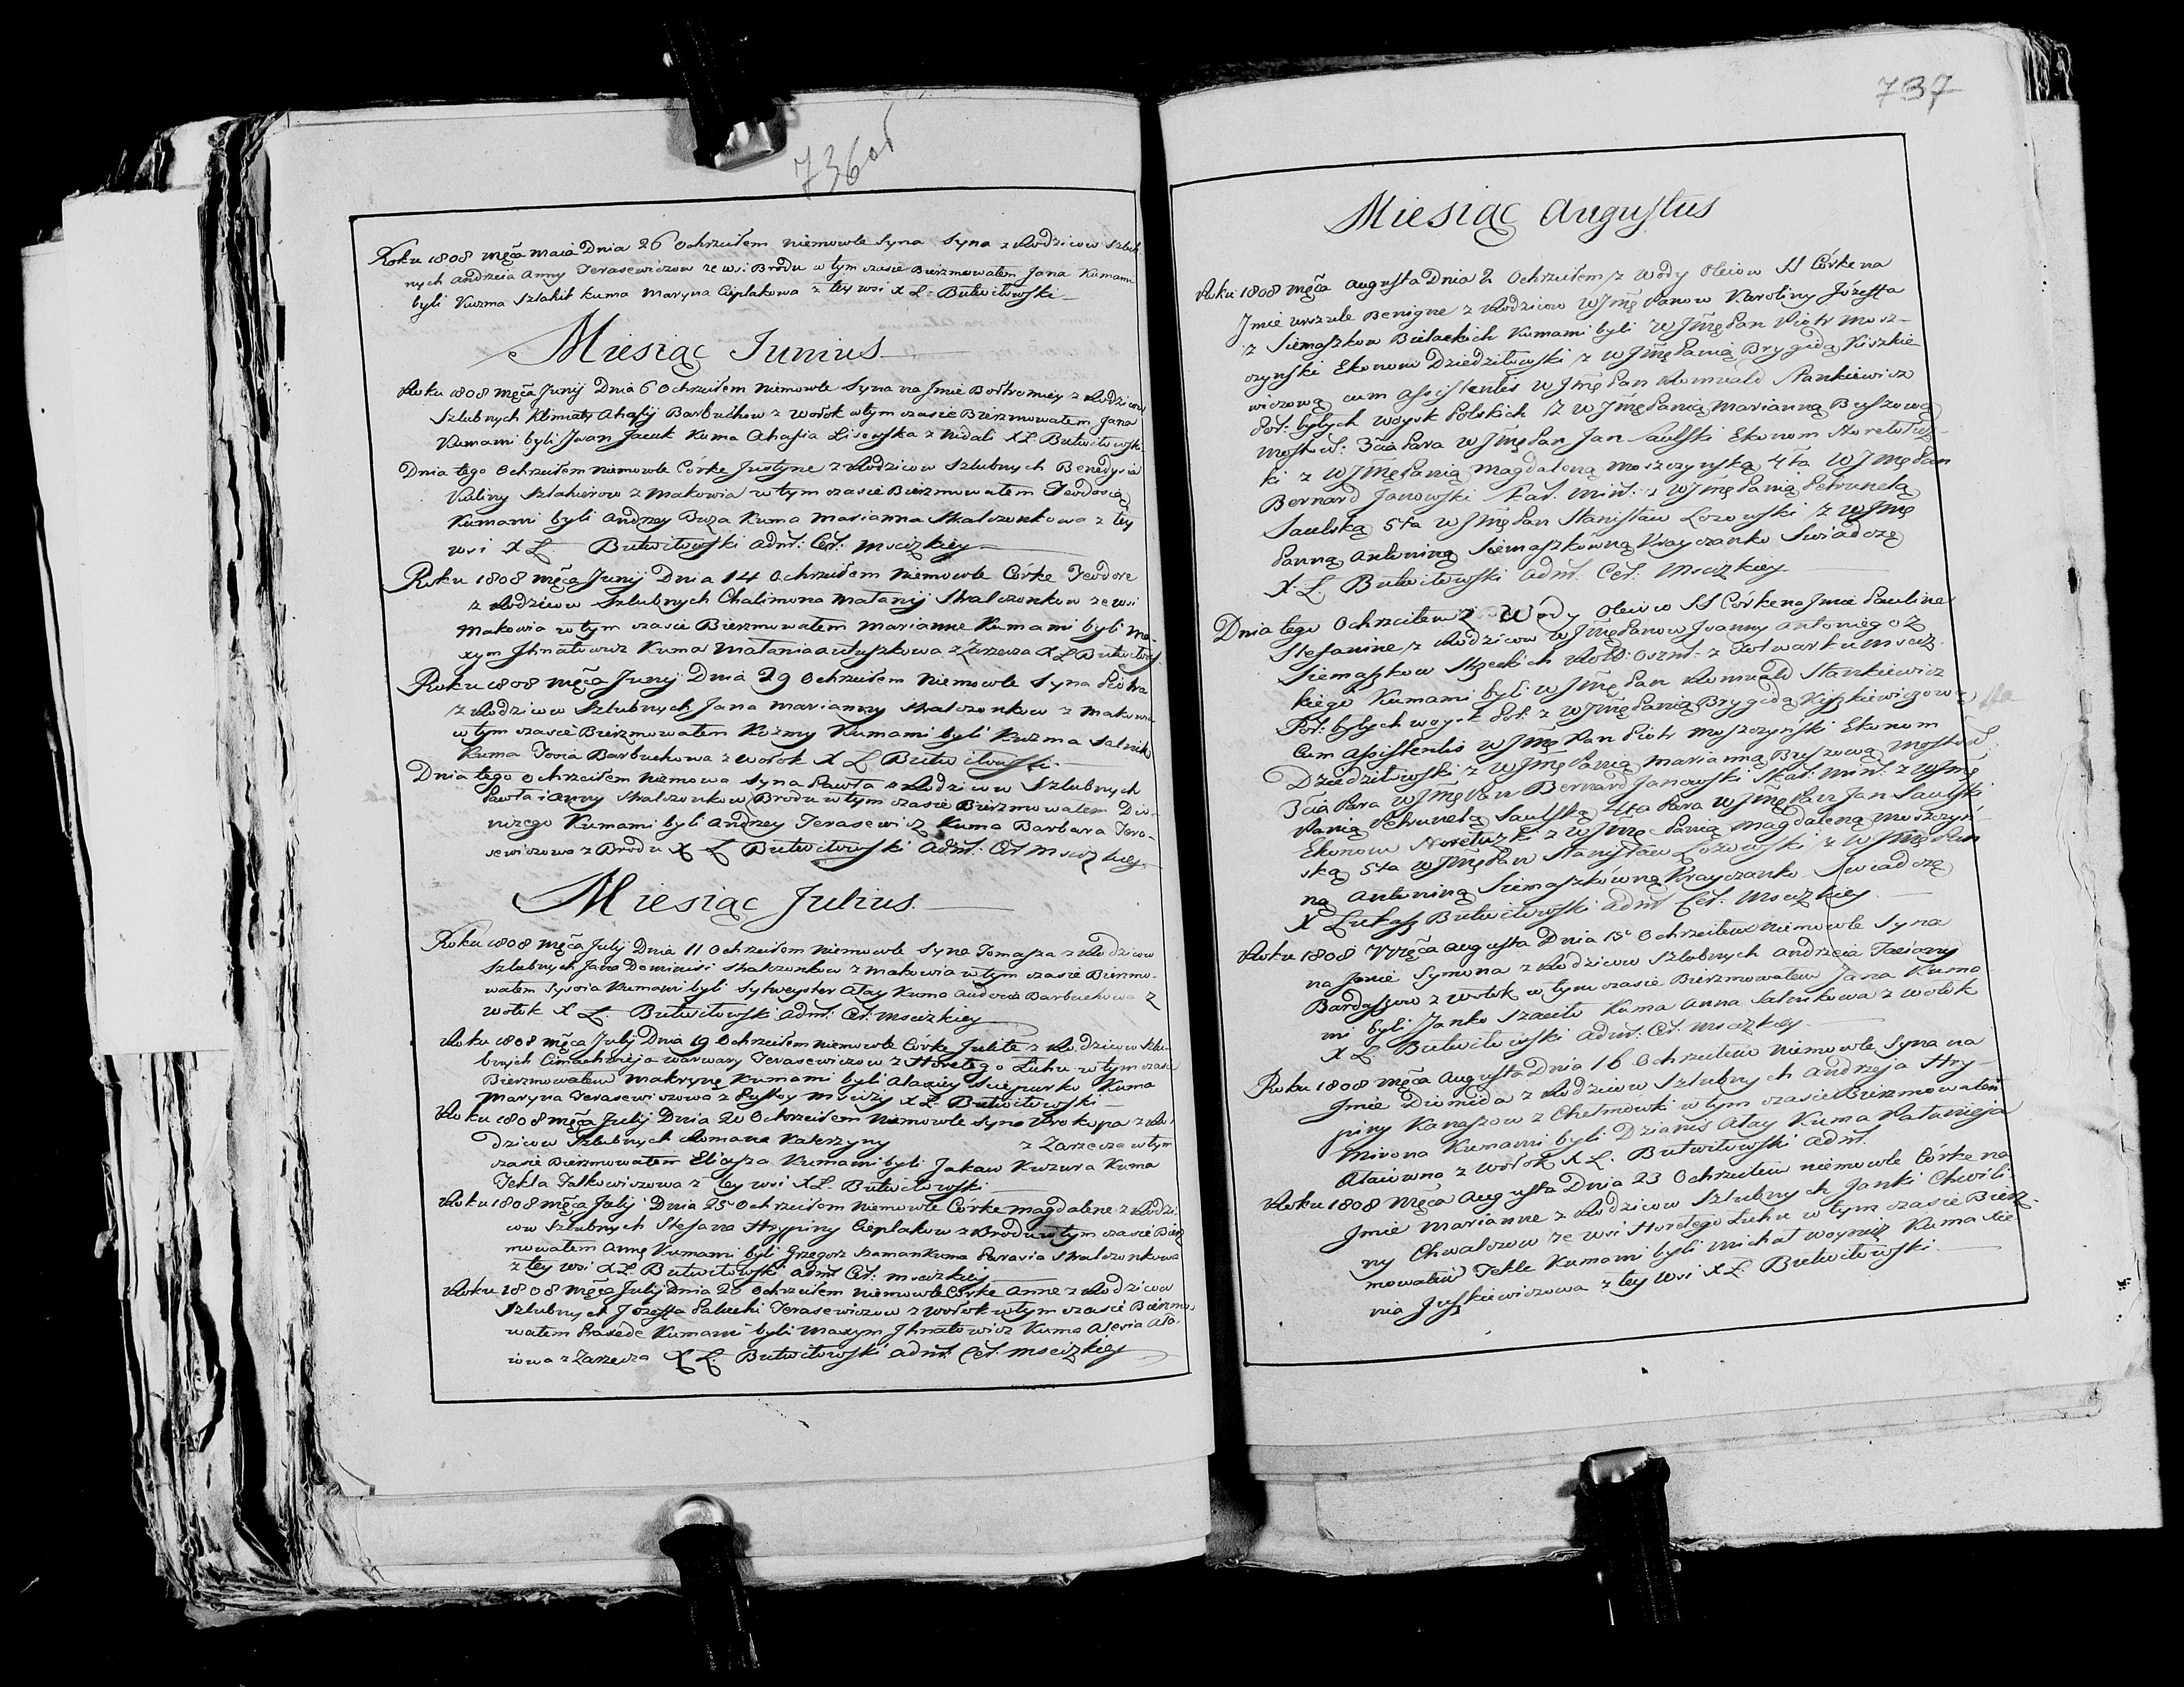 736 об
Roku 1808 męca Maia Dnia 26 Ochrzciłem niemowle Syna Syna z Rodzicow Szlub-
nych Andrzeia Anny Terasewiczow ze wsi Brodu w tym czasie Bierzmowałem Jana Kumami
byli Kuzma Szlahit kuma Maryna Cieplakowa z tey wsi X L. Butwiłowski
Miesiąc Iunius
Roku 1808 męca Junij Dnia 6 Ochrzciłem niemowle Syna na Jmie z Rodzicow
Szlubnych Klimiaty Ahafij Barbuchow z Wołok w tym czasie Bierzmowałem Jana
Kumami byli Jwan Jacuk Kuma Ahafia Lisowska z X L. Butwiłowski
Dnia tego Ochrzciłem niemowle Córke Justyne z Rodzicow Szlubnych
Kuliny z Makowia w tym czasie Bierzmowałem Teodosią
Kumami byli Andrzey Buza Kuma Marianna Skalczonkowa z tey
wsi X L Butwiłowski Adm: Cer: Mscizkiey
Roku 1808 męca Junij Dnia 14 Ochrzciłem Niemowle Córke Teodore
z Rodzicow Szlubnych Chalimona Małanij Skalczonkow ze wsi
Makowia w tym czasie Bierzmowałem Marianne Kumami byli Ma-
xym Jhnatowicz Kuma Małania z Zarzecza X L Butwiłowski
Roku 1808 męca Junij Dnia 29 Ochrzciłem Niemowle Syna Piotra
z Rodzicow Szlubnych Jana Marianny Skalczonkow z Makowia
w tym czasie Bierzmowałem Kozmy Kumami byli Kuzma Salnik
Kuma Barbuchowa z Wołok X L Butwiłowski
Dnia tego Ochrzciłem niemowa Syna Pawła z Rodzicow Szlubnych
Pawła i Anny Skalczonkow Brodu w tym czasie Bierzmowałem Dio-
nizego Kumami byli Andrzey Terasewicz Kuma Barbara Tera-
sewiczowa z Brodu X L Butwiłowski Adm: Cer Mscizkiey
Miesiąc Julius
Roku 1808 męca Julij Dnia 11 Ochrzciłem niemowle Syna Tomasza z Rodzicow
Szlubnych Jana Dominisi Skalczonkow z Makowia w tym czasie Bierzmo-
wałem Sysoia Kumami byli Sylweyster Ałay Kuma Barbuchowa z
Wołok X L. Butwiłowski Adm: Cer: Mscizkiey
Roku 1808 męca Julij Dnia 19 Ochrzciłem niemowle Córke Julite z Rodzicow Szlu-
bnych Warwary Terasewiczow z Horełego Łuhu w tym czasie
Bierzmowałem Makrynę Kumami byli Alaxiey Kuma
Maryna Terasewiczowa z Pustoy Mścizy X L. Butwiłowski
Roku 1808 męca Julij Dnia 20 Ochrzciłem Niemowle Syna Prokopa z Ro-
dzicow Szlubnych Romana Katerzyny z Zarzecza w tym
czasie Bierzmowałem Eliasza Kumami byli Jakaw Kuzura Kuma
Tekla Falkowiczowa z tey wsi X L. Butwiłowski
Roku 1808 męca Julij Dnia 25 Ochrzciłem Niemowle Córke Magdalene z Rodzi-
cow Szlubnych Stefana Hrypiny Cieplakow z Brodu w tym czasie Bierz
mowałem Annę Kumami byli Grzegorz Szaman Kuma Parasia Skalczonkowa
z tey wsi X L. Butwiłowski Adm Cer: Mscizkiey
Roku 1808 męca Julij Dnia 26 Ochrzciłem niemowle Córke Anne z Rodzicow
Szlubnych Jozeffa Terasewiczow z Wołok w tym czasie Bierzmo-
wałem Praxede Kumami byli Maxym Jhnatowicz Kuma Ała-
iowa z Zarzecza X L. Butwiłowski Adm: Cer: Mscizkiey
737
Miesiąc Augustus
Roku 1808 męca Augusta Dnia 2 Ochrzciłem z Wody Oleiow SS Córke na
Jmie Urszule Benigne z Rodzicow WJmę Panow Karoliny Józeffa
z Siemaszkow Bielackich Kumami byli WJmę Pan Piotr Mosz-
czynski Ekonom Dziedziłowski z WJmę Panią Brygidą Kiszkie-
wiczową cum Assistentis WJmę Pan Romuald Stankiewicz
Por: byłych Woysk Polskich z WJmę Panią Marianną Buszową
Mostow: 3cia Para WJmę Pan Jan Saulski Ekonom
ki z WJmę Panią Magdaleną Moszczynską 4ta WJmę Pan
Bernard Janowski Skar: Min: z WJmę Panią Petrunelą
Saulską 5ta WJmę Pan Stanisław Łozowski z WJmę
Panną Antoniną Siemaszkówną Krayczanko Swiadczę
X. L. Butwiłowski Adm: Cer: Mscizkiey
Dnia tego Ochrzciłem z Wody Oleiow SS Córke na Jmie Pauline
Stefanine z Rodzicow WJmę Panow Joanny Antoniego z
Siemaszkow z Folwarku Mscizz-
kiego Kumami byli WJmę Pan Romuald Stankiewicz
Por: byłych woysk Pol: z WJmę Panią Brygidą Kiszkiewiczową
Cum Assistentis WJmę Pan Piotr Moszczyński Ekonom
Dziedziłowski z WJmę Panią Marianną Buszową Mostow:
3cia Para WJmę Pan Bernard Janowski Skar: Min: z WJmę
Panią Petrunelą Saulską 4ta Para WJmę Pan Jan Saulski
Ekonom z WJmę Panią Magdaleną Moszczyń-
ską 5ta WJmę Pan Stanisław Łozowski z WJmę Pan
ną Antoniną Siemaszkówną Krayczanko Swiadczę
X Łukasz Butwiłowski Adm Cer: Mscizkiey
Roku 1808 Męca Augusta Dnia 15 Ochrzciłem Niemowle Syna
na Jmie Symona z Rodzicow Szlubnych Andrzeia Taciany
Bardaszow z Wołok w tym czasie Bierzmowałem Jana Kuma
mi byli Janko Kuma Anna Salnikowa z Wołok
X L. Butwiłowski Adm: Cer: Mscizkiey
Roku 1808 męca Augusta Dnia 16 Ochrzciłem Niemowle Syna na
Jmie Diomida z Rodzicow Szlubnych Andrzeja Hry-
piny Kanaszow z Chełmowki w tym czasie Bierzmowałem
Mirona Kumami byli Dzianis Ałay Kuma Pałanieja
Ałaiowna z Wołok X L. Butwiłowski Adm:
Roku 1808 Męca Augusta Dnia 23 Ochrzciłem niemowle Córke na
Jmie Marianne z Rodzicow Szlubnych Janki Chwili-
ny Chwalczow ze wsi Horełego Łuhu w tym czasie Bierz-
mowałem Tekle Kumami byli Michał Woynicz Kuma Xie
nia Juszkiewiczowa z tey wsi X L. Butwiłowski